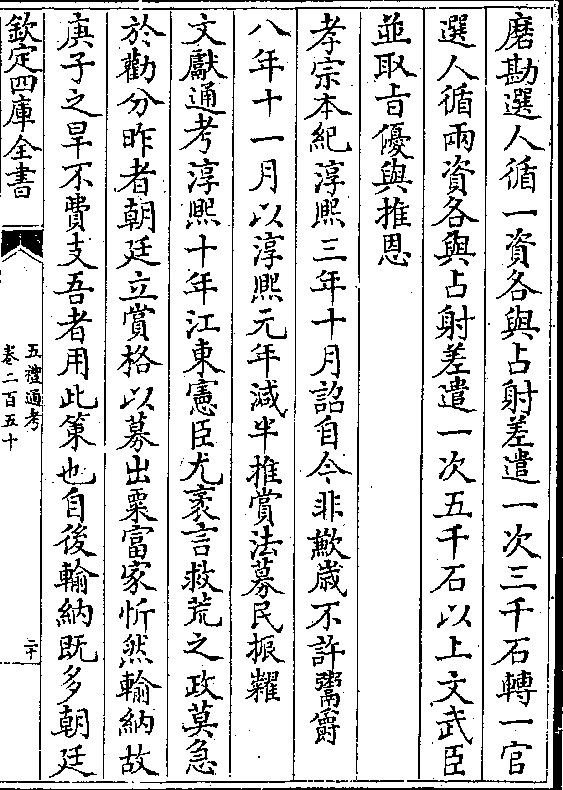 磨勘選人循一資各與占射差遣一次三千石轉一官
選人循兩資各與占射差遣一次五千石以上文武臣
並取㫖優與推恩
孝宗本紀淳熙三年十月詔自今非歉歲不許鬻爵
八年十一月以淳熙元年減半推賞法募民振糶
文獻通考淳熙十年江東憲臣尤袤言救荒之政莫急
於勸分昨者朝廷立賞格以募出粟富家忻然輸納故
庚子之旱不費支吾者用此䇿也自後輸納既多朝廷
欽定四庫全書
五禮通考
卷二百五十
二十